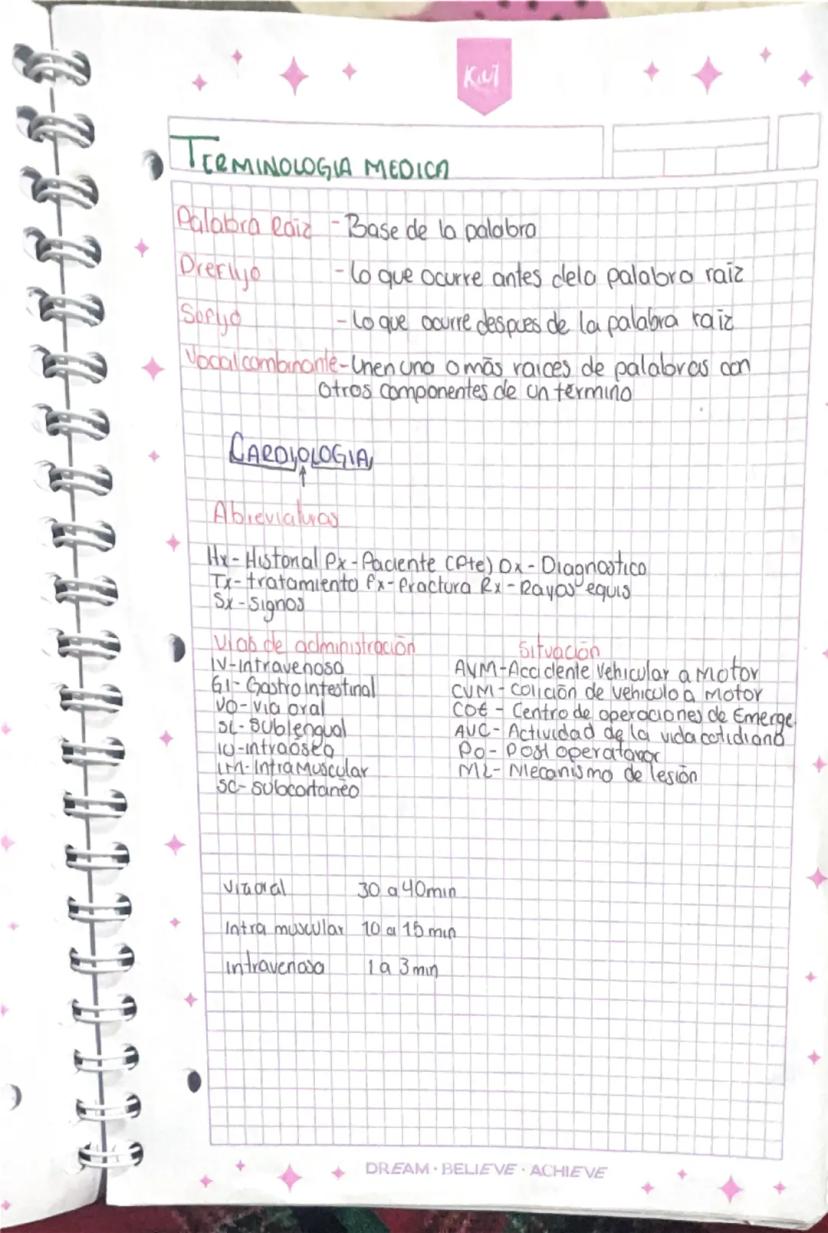 Kiut
TERMINOLOGIA MEDICA
Palabra Raiz - Base de la palabra
Prefijo - lo que ocurre antes dela palabra raiz
Sofijo - lo que ocurre despues de la palabra raiz
Vocal combinante - Unen una o más raices de palabras con
otros componentes de un termino
CARDIOLOGIA
Abreviaturas
Hx - Historial Px - Paciente (Pte) Dx - Diagnostico
Tx - tratamiento Fx - Fractura Rx - Rayos equis
Sx - Signos
Vias de administración Situación
IV - Intravenosa AVM - Accidente vehicular a Motor
GI - Gastro intestinal CVM - Colición de vehiculo a motor
VO - via oral COE - Centro de operaciones de Emerge
SL - Sublengual AVC - Actividad de la vida cotidiana
IO - intraósea PO - Post operatavor
IM - Intra Muscular ML - Mecanismo de lesión
SC - Subcortaneo
Via oral 30 a 40 min
Intra muscular 10 a 15 min
intravenosa 1 a 3 min
DREAM · BELIEVE · ACHIEVE